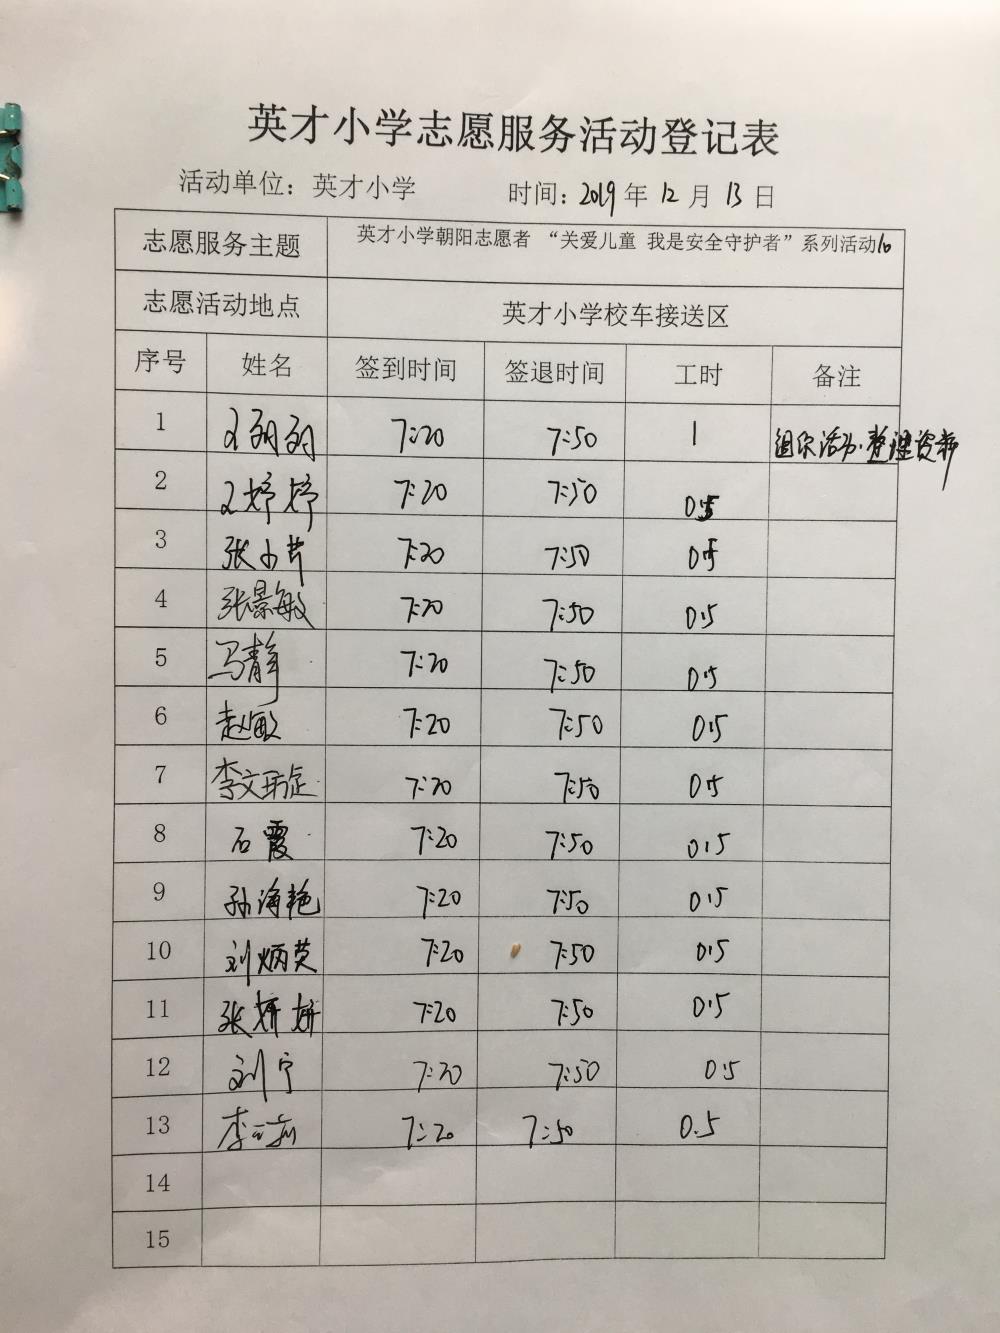 英才小学志愿服务活动登记表
活动单位：英才小学 时间：2019年12月13日
志愿服务主题 英才小学朝阳志愿者 “关爱儿童 我是安全守护者”系列活动10
志愿活动地点 英才小学校车接送区
序号 姓名 签到时间 签退时间 工时 备注
1 7:20 7:50 1 组织活动、整理资料
2 王婷婷 7:20 7:50 0.5
3 张小芹 7:20 7:50 0.5
4 张景敏 7:20 7:50 0.5
5 马静 7:20 7:50 0.5
6 赵敏 7:20 7:50 0.5
7 李文 7:20 7:50 0.5
8 石霞 7:20 7:50 0.5
9 孙海艳 7:20 7:50 0.5
10 刘炳英 7:20 7:50 0.5
11 张妍妍 7:20 7:50 0.5
12 刘宁 7:20 7:50 0.5
13 李 7:20 7:50 0.5
14
15